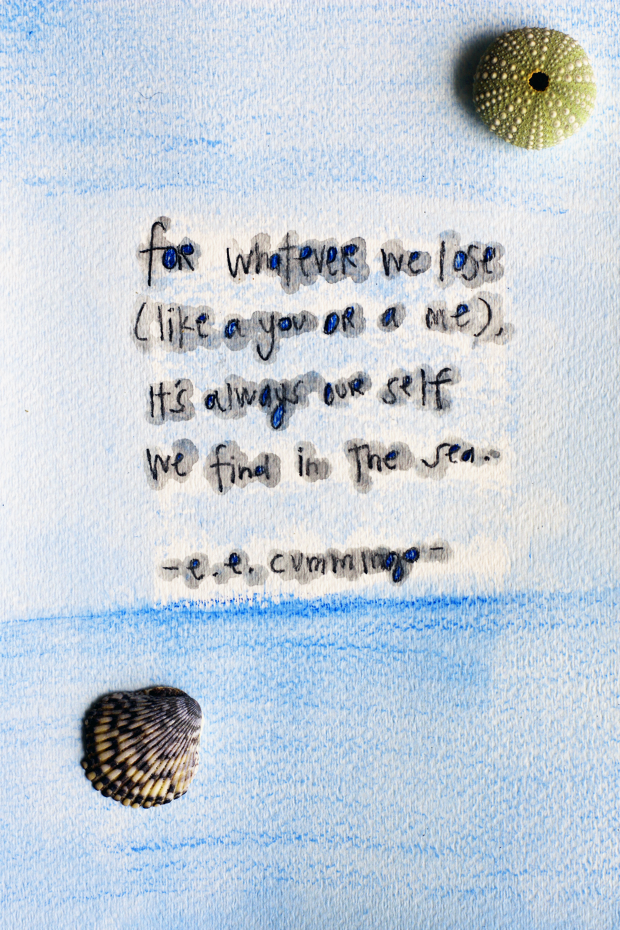 for whatever we lose
(like a you or a me),
It's always our self
we find in the sea.
-e.e. cummings-